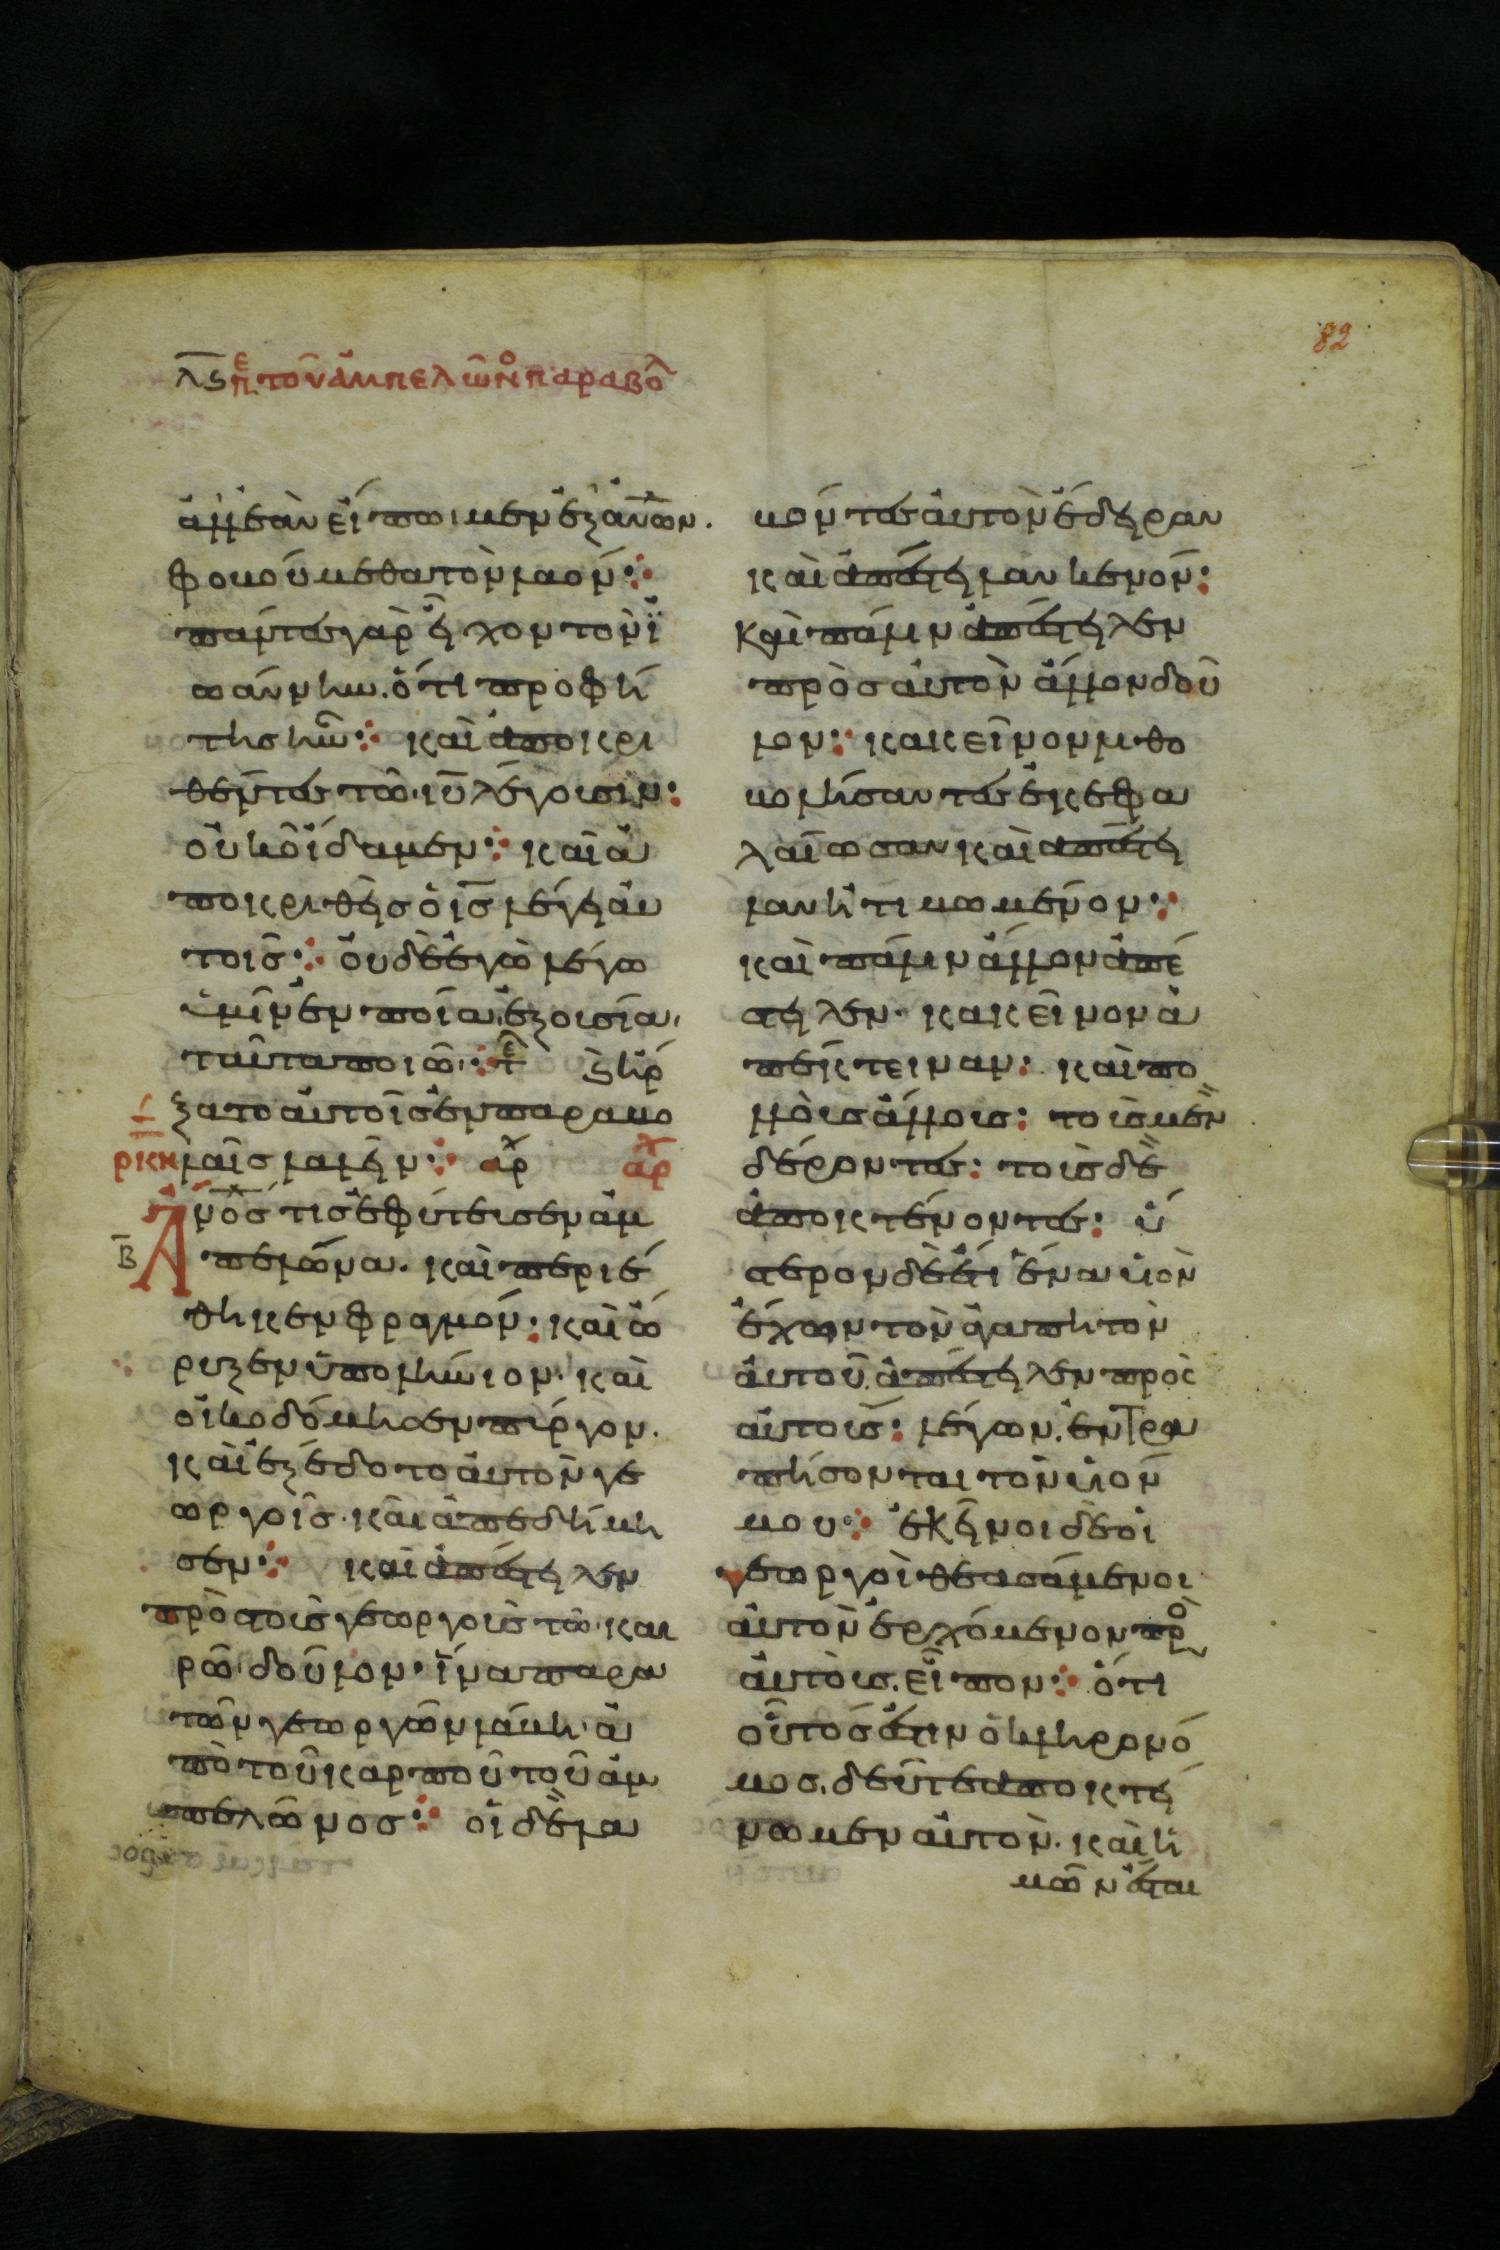 82
λϛ πε τον ἀμπελῶνος παραβολ
ἀλλεὰν εἴπωμεν ἐξ ἀν͞ων.
φοβούμεθα τὸν λαόν:
πάντες γὰρ εἶχον τὸν ἰ
ωάννην. ὅτι προφή
της ἦν: καὶ ἀποκρι
θέντες τῶ ι͞υ λέγουσιν:
οὐκ οἴδαμεν: καὶ ἀ
ποκριθεὶς ὁ ι͞ς λέγει αὐ
τοῖς: οὐδὲ ἐγὼ λέγω
ὑμῖν ἐν ποία ἐξουσία,
ταῦτα ποιῶ: τε ϛ ἤρ
ξατο αὐτοῖς ἐν παραβο
ρκη λαῖς λαλεῖν: αρχ αρχ
Ἄν͞ος τις ἐφύτευσεν ἀμ
β πελῶνα. καὶ περιέ
θηκεν φραγμόν: καὶ ὤ
ρυξεν ὑπολήνιον. καὶ
οἰκοδόμησεν πύργον.
καὶ ἐξέδοτο αὐτὸν γε
ωργοῖς. καὶ ἀπεδήμη
σεν: καὶ ἀπέστειλεν
πρὸς τοὺς γεωργοὺς τῶ και
ρῶ δοῦλον. ἵνα παρα
τῶν γεωργῶν λάβη ἀ
πὸ τοῦ καρποῦ τοῦ ἀμ
πελῶνος: οἱ δὲ λα
βόντες αὐτὸν ἔδειραν
καὶ ἀπέστειλαν κενόν:
Καὶ πάλιν ἀπέστειλεν
πρὸς αὐτὸν ἄλλον δοῦ
λον: κακεῖνον λιθο
βολήσαντες ἐκεφα
λαίωσαν καὶ ἀπέστει
λαν ἠτιμωμένον:
καὶ πάλιν ἄλλον ἀπέ
στειλεν. κακεῖνον ἀ
πέκτειναν: καὶ πο
λλοὺς ἄλλους: τοὺς μὲν
δέροντες: τοὺς δὲ
ἀποκτένοντες: ὕ
στερον δὲ ἔτι ἕνα υἱὸν
ἔχων τὸν ἀγαπητὸν
αὐτοῦ ἀπέστειλεν πρὸς
αὐτούς: λέγων. ἐντρα
πήσονται τὸν υἱόν
μου: ἐκεῖνοι δὲ οἱ
γεωργοὶ θεασάμενοι
αὐτὸν ἐρχόμενον πρὸ
αὐτοὺς. εἶπον: ὅτι
οὗτός ἐστιν ὁ κληρονό
μος. δεῦτε ἀποκτεί
νωμεν αὐτὸν. καὶ ἡ
μῶν ἔσται